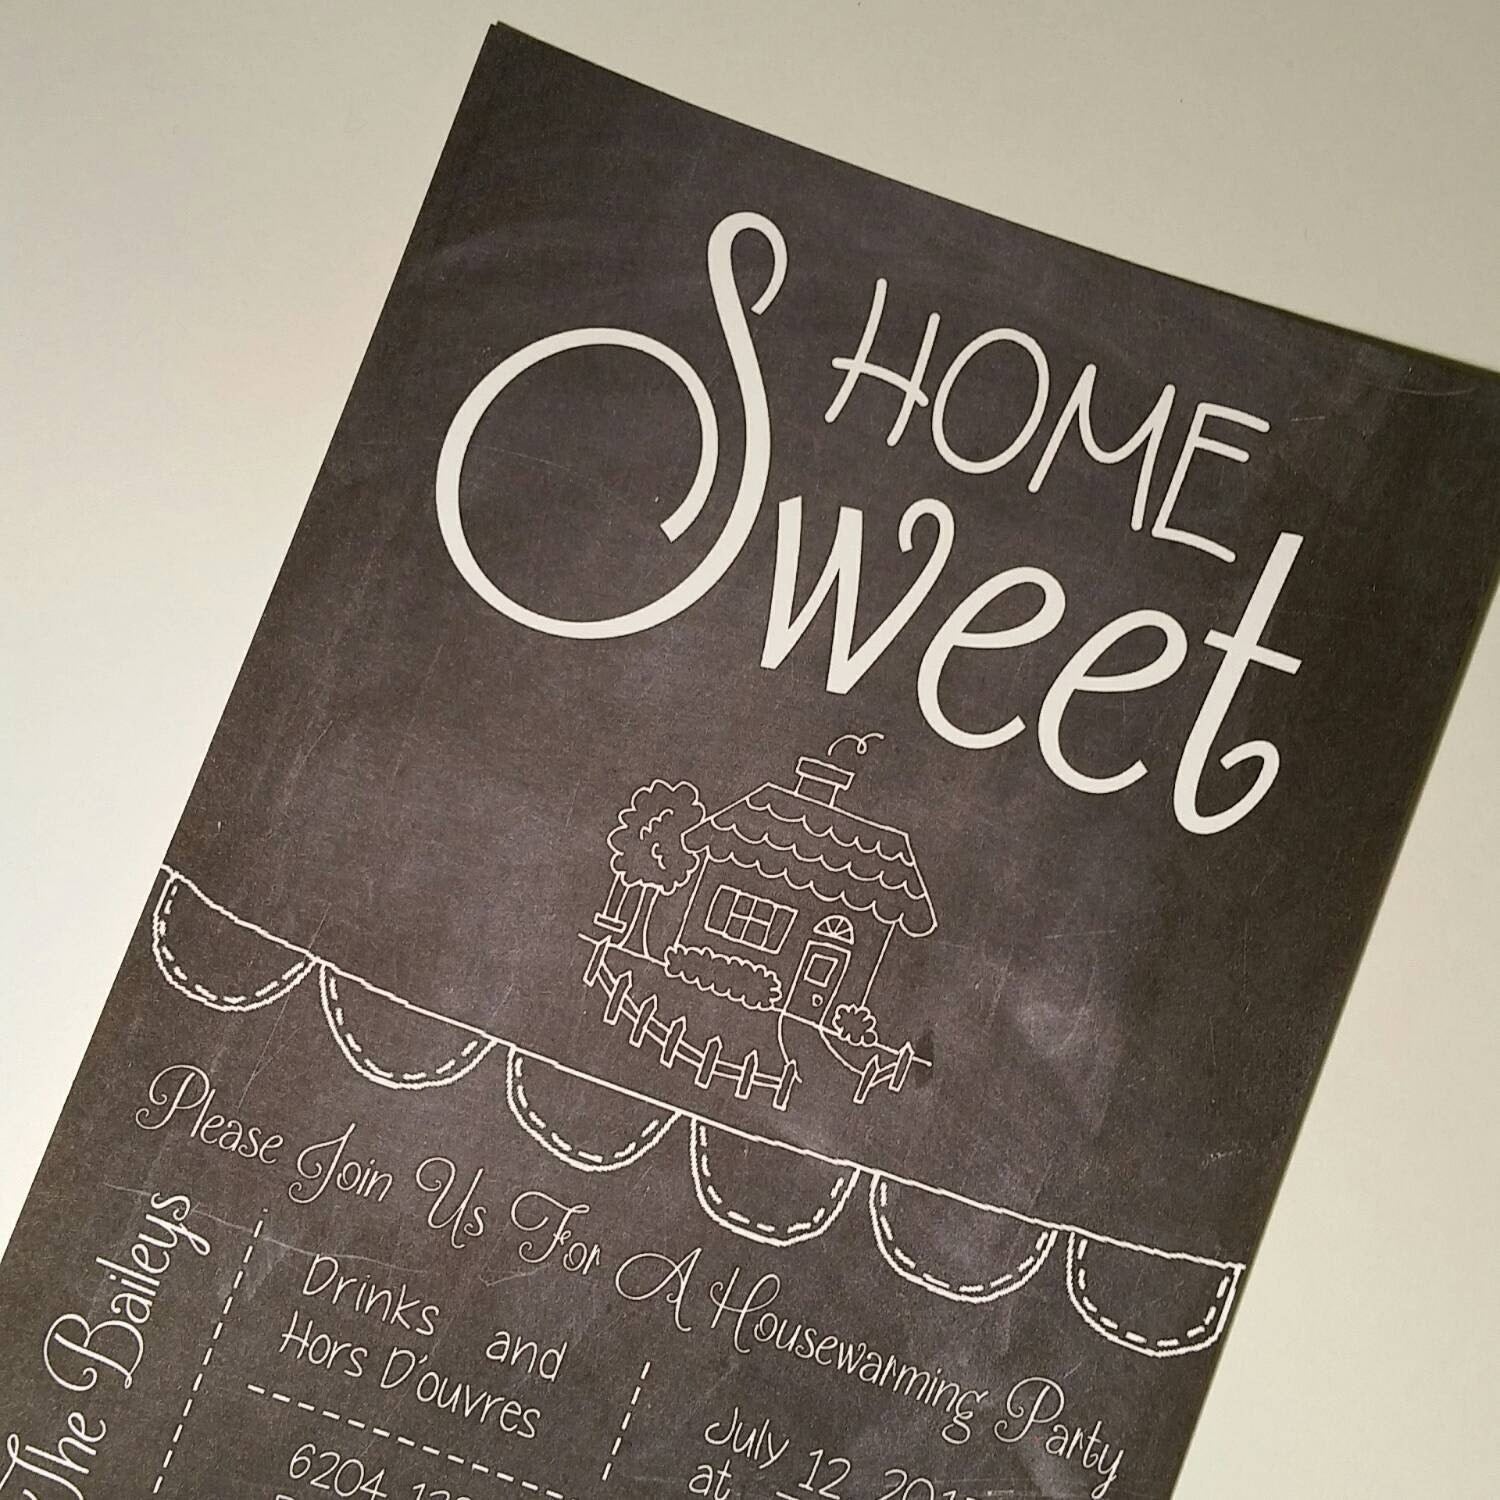 HOME
Sweet
Please Join Us For A Housewarming Party
The Baileys
Drinks and
Hors D'ouvres
July 12
at
6204